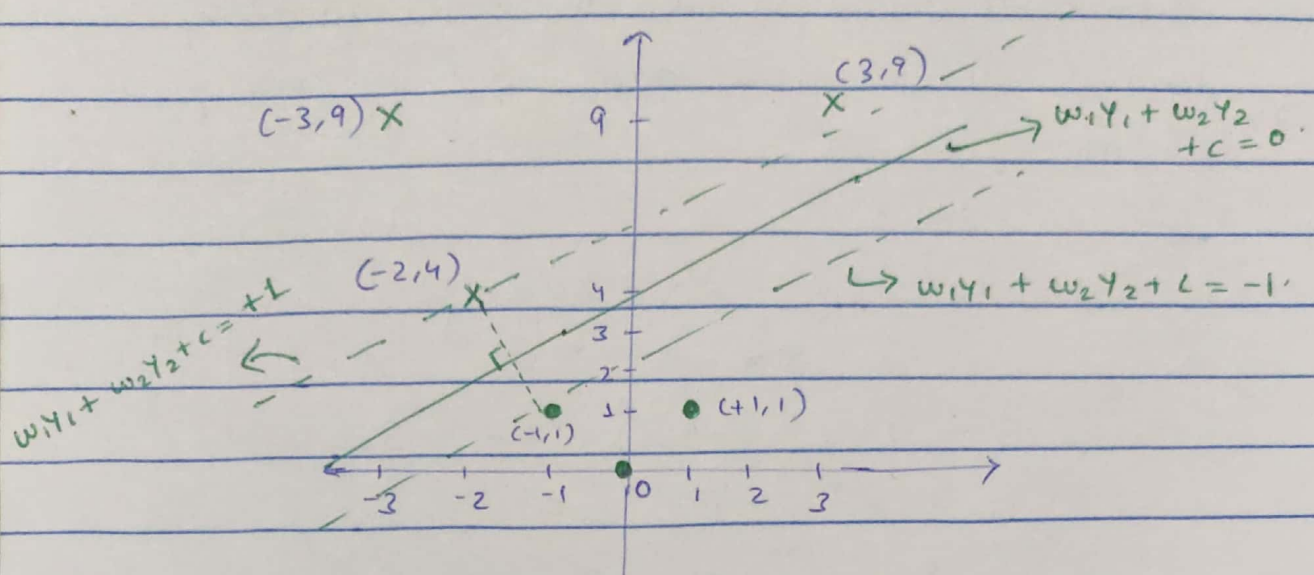 (3,9)
(-3,9) X
X
9
w₁y₁ + w₂y₂
+ c = 0
(-2,4)
X
4
w₁y₁ + w₂y₂ + c = -1
w₁y₁ + w₂y₂ + c = +1
3
2
1
(-1,1)
(+1,1)
-3 -2 -1 0 1 2 3